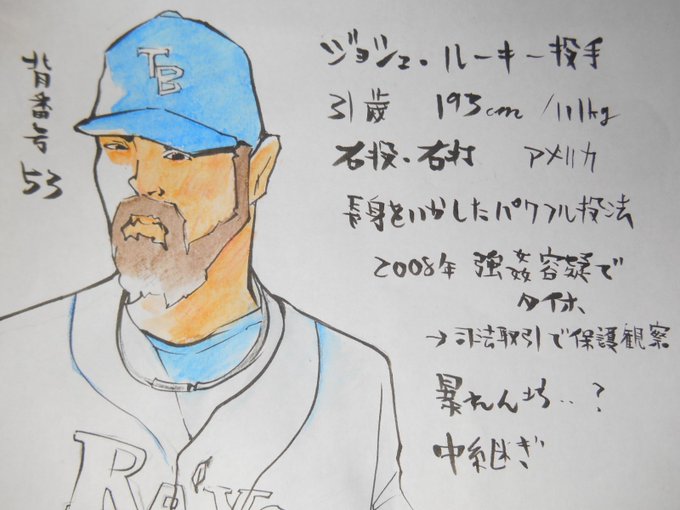 TB
背番号
53
ジョシュ・ルーキー投手
31歳 195cm/111kg
右投・右打 アメリカ
長身をいかしたパワフル投法
2008年 強姦容疑で
タイホ
→司法取引で保護観察
暴れん坊‥?
中継ぎ
RAYS